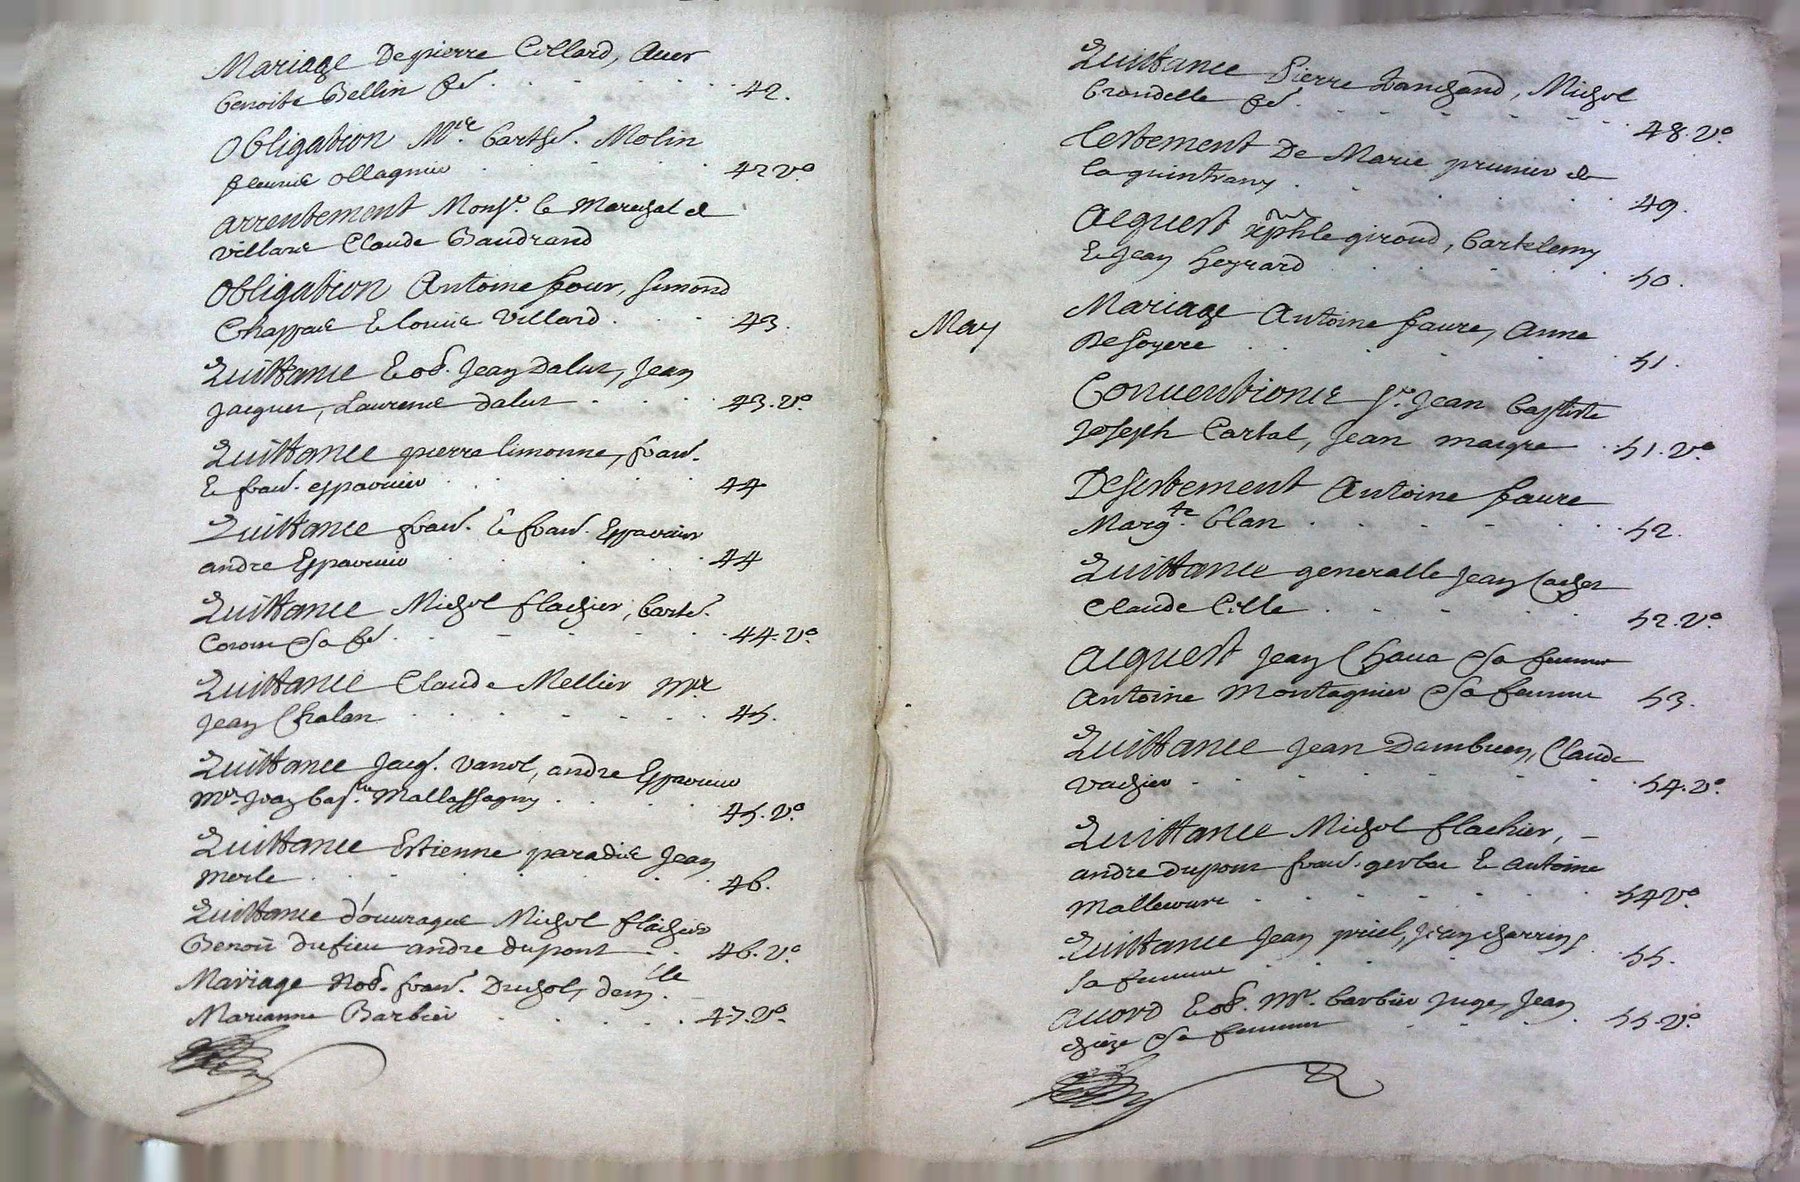 Mariage De pierre Collard, Avec
Benoite Bellin fe. 42.
Obligation Mre. Barthe. Molin
fleurie ollagnier 42 vo.
arrentement Monsr. le Mareshal de
villars Claude Baudrand
Obligation Antoine four, simond
Chappuis & louise Villard. 43.
Quittance Eod. Jean Dalus, Jean
Jacques, Laurence dalus 43. vo.
Quittance pierre limonne, fran.
& fran. esparvier 44
Quittance fran. & fran. Esparvier
andre Esparvier 44
Quittance Michel flachier, Barte.
Coron & sa fe. 44. vo.
Quittance Claude Mellier Mre
Jean Chalan 45.
Quittance Jacq. Vanel, andre Esparvier
Mre Jean bapte. Mallassagny 45. vo.
Quittance Estienne paradis Jean
Merle 46.
Quittance d'ouvrages Michel flachier
Benoit dufieu andre dupont 46. vo.
Mariage Nob. fran. Duchol, damlle.
Marianne Barbier 47. vo.
Quittance Pierre Tanchand, Michel
Grandelle fe. 48. vo.
Testement De Marie prunier de
la quintrany 49.
Acquest giroud, Bartelemy
& Jean heyrard 50.
May
Mariage Antoine faure, Anne
Desoyere 51.
Conventions sr. Jean Baptiste
Joseph Cartal, Jean maigre 51. vo.
Desistement Antoine faure
Margte. blan 52.
Quittance generalle Jean Cacher
Claude Cille 52. vo.
Acquest Jean Chava & sa femme
Antoine Montagnier & sa femme 53.
Quittance Jean Dambuen, Claude
Vachier 54. vo.
Quittance Michel flachier,
andre dupont fran. gerbas & Antoine
Mallecourt 54 vo.
Quittance Jean priel, Jean
sa femme 55.
Accord Eod. Mre. barbier juge, Jean
& sa femme 55. vo.